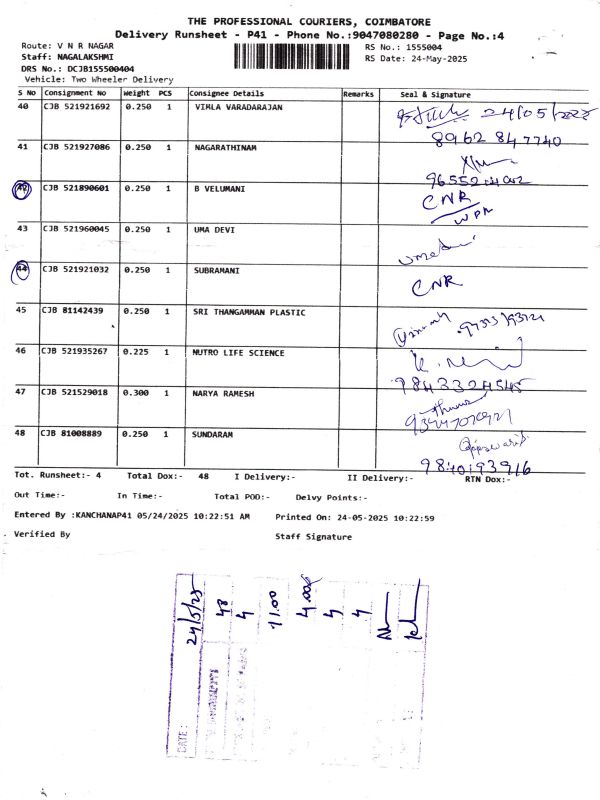 THE PROFESSIONAL COURIERS, COIMBATORE
Delivery Runsheet - P41 - Phone No.:9047080280 - Page No.:4
Route: V N R NAGAR RS No.: 1555004
Staff: NAGALAKSHMI RS Date: 24-May-2025
DRS No.: DCJB155500404
Vehicle: Two Wheeler Delivery
S No Consignment No Weight PCS Consignee Details Remarks Seal & Signature
40 CJB 521921692 0.250 1 VIMLA VARADARAJAN 24/05/2025
8962 847740
41 CJB 521927086 0.250 1 NAGARATHINAM
42 CJB 521890601 0.250 1 B VELUMANI CNR
WPN
43 CJB 521960045 0.250 1 UMA DEVI
44 CJB 521921032 0.250 1 SUBRAMANI CNR
45 CJB 81142439 0.250 1 SRI THANGAMMAN PLASTIC
46 CJB 521935267 0.225 1 NUTRO LIFE SCIENCE
9843324545
47 CJB 521529018 0.300 1 NARYA RAMESH
48 CJB 81008889 0.250 1 SUNDARAM
9840193916
Tot. Runsheet:- 4 Total Dox:- 48 I Delivery:- II Delivery:- RTN Dox:-
Out Time:- In Time:- Total POD:- Delvy Points:-
Entered By :KANCHANAP41 05/24/2025 10:22:51 AM Printed On: 24-05-2025 10:22:59
Verified By Staff Signature
DATE: 24/5/25
48
4
11.00
4.00
4
4